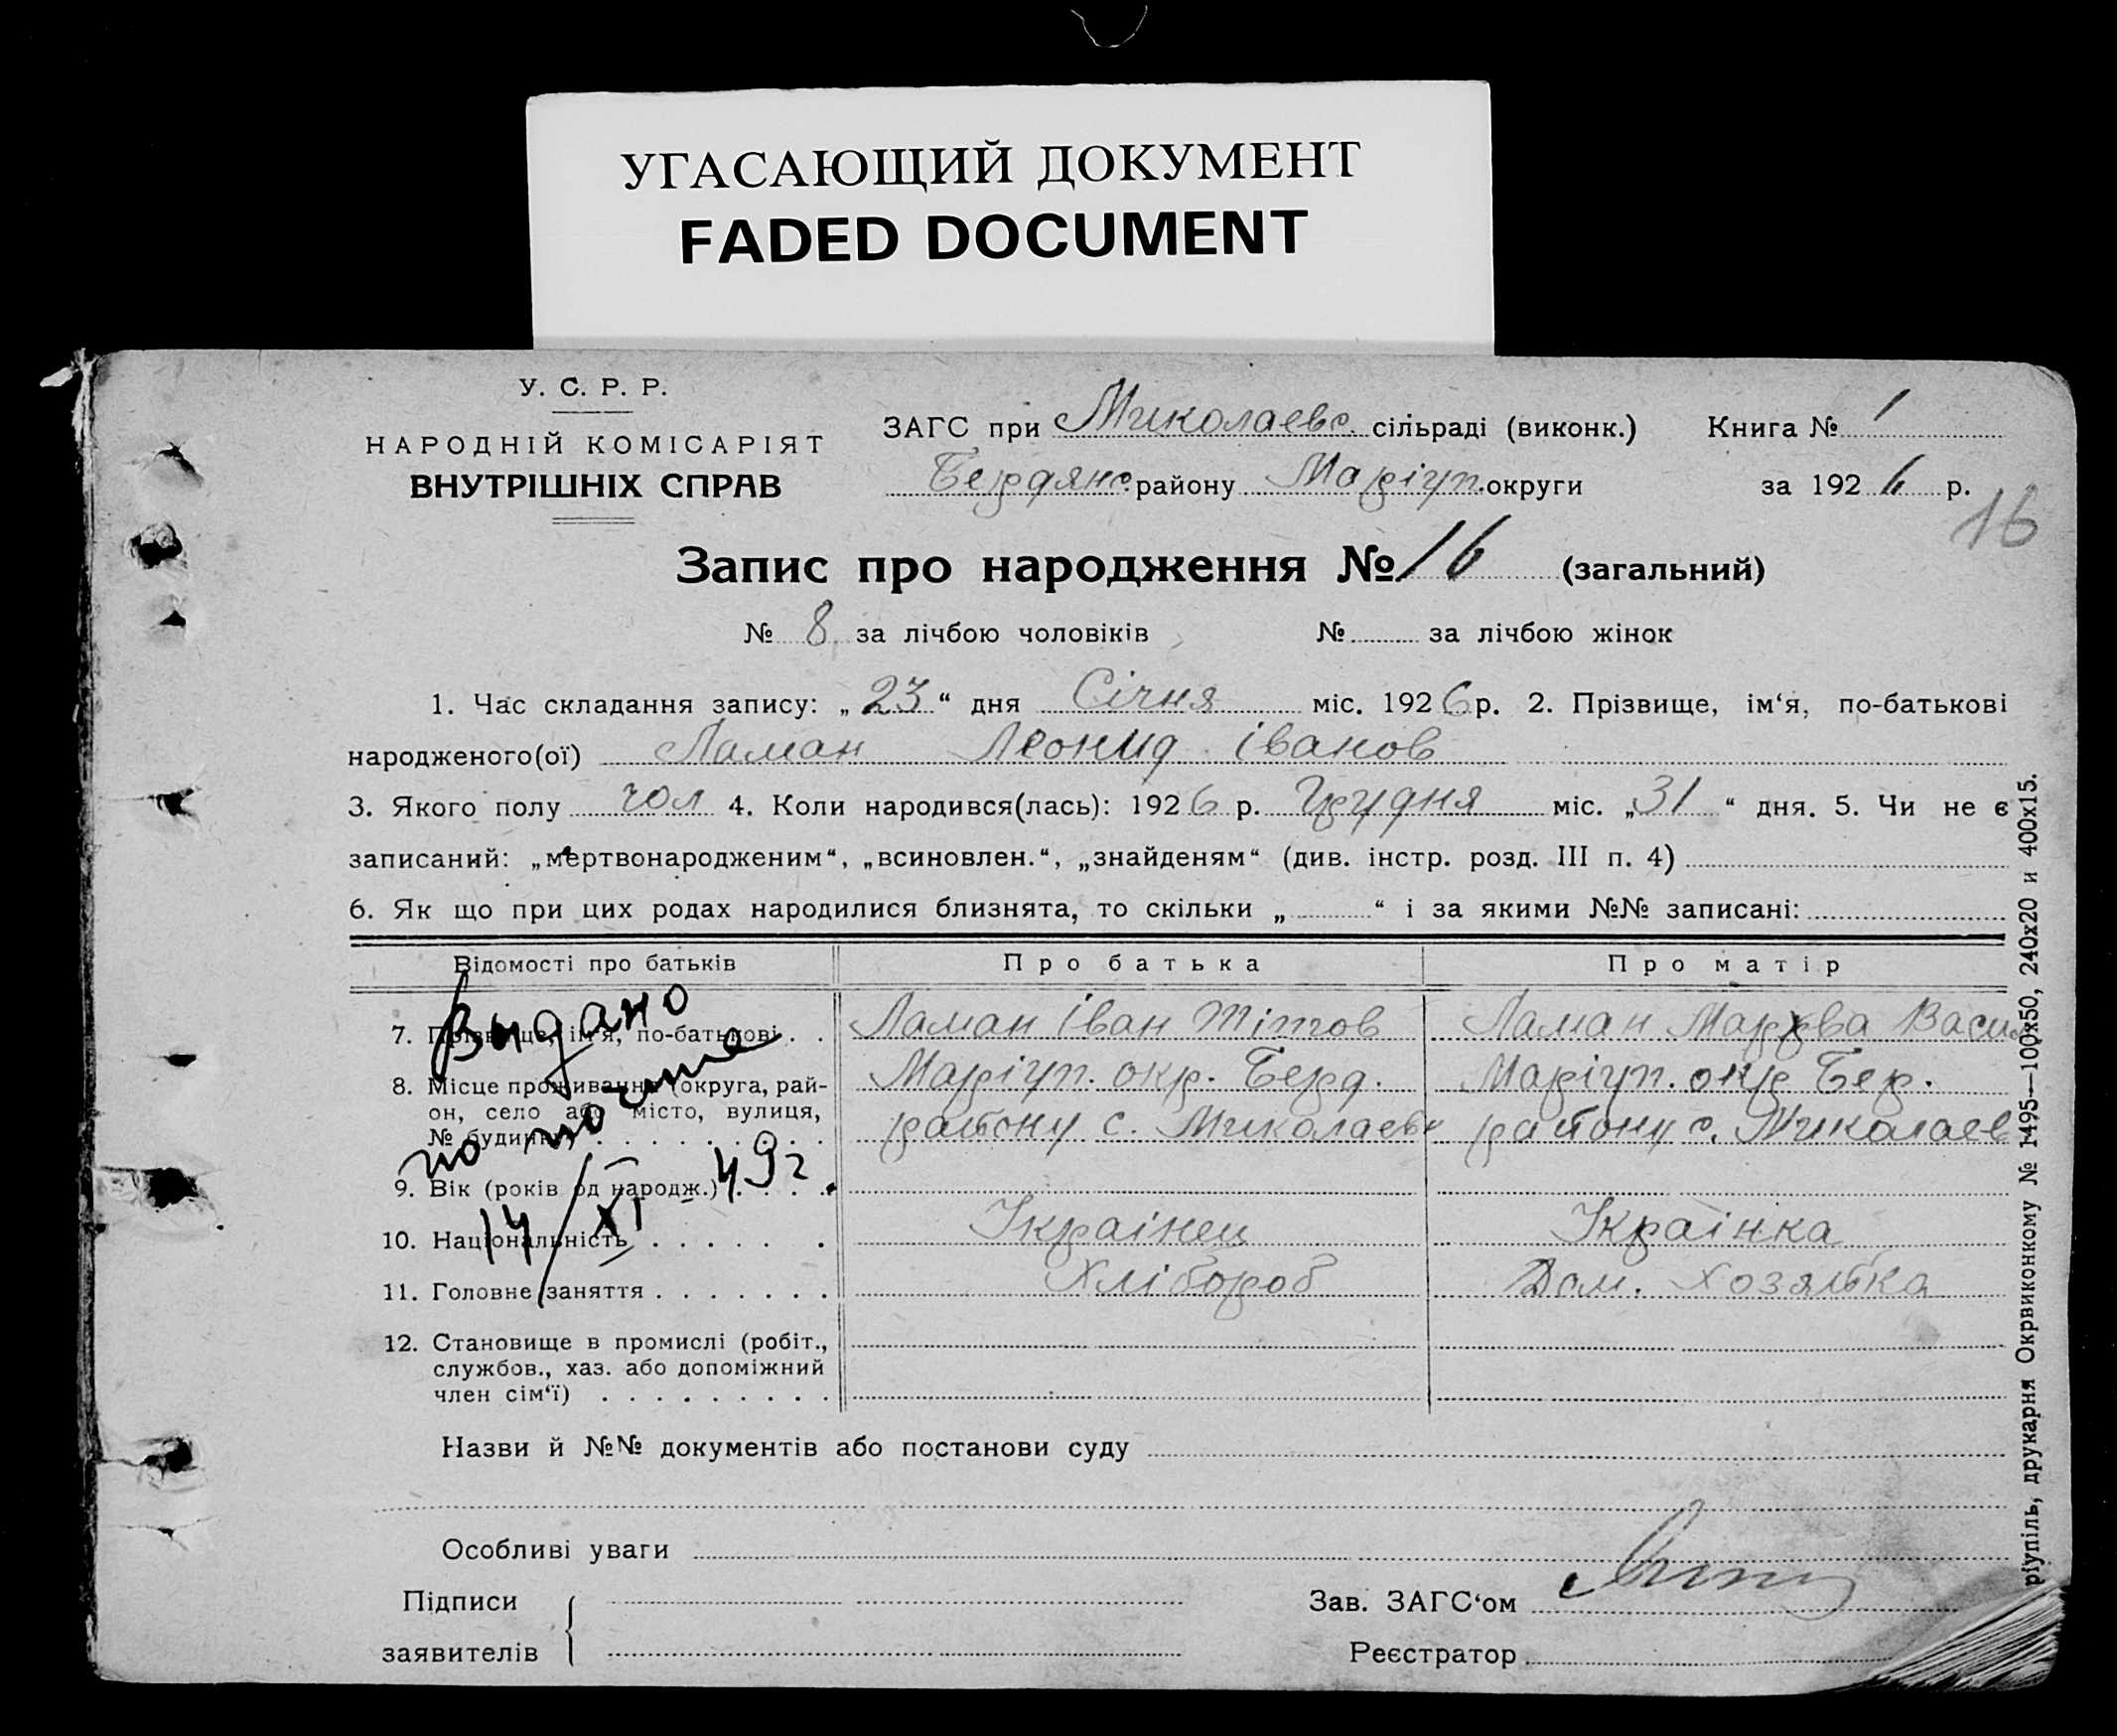 УГАСАЮЩИЙ ДОКУМЕНТ
FADED DOCUMENT
У. С. Р. Р.
НАРОДНІЙ КОМІСАРІЯТ
ВНУТРІШНІХ СПРАВ
ЗАГС при Миколаевс. сільраді (виконк.) Книга № 1
Бердянс. району Маріуп. округи за 1926 р.
16
Запис про народження № 16 (загальний)
№ 8 за лічбою чоловіків № за лічбою жінок
1. Час складання запису: „23“ дня Січня міс. 1926 р. 2. Прізвище, ім‘я, по-батькові
народженого(ої) Ламан Леонид іванов
3. Якого полу чол 4. Коли народився(лась): 1926 р. Грудня міс. „31“ дня. 5. Чи не є
записаний: „мертвонародженим“, „всиновлен.“, „знайденям“ (див. інстр. розд. III п. 4)
6. Як що при цих родах народилися близнята, то скільки „ “ і за якими №№ записані:
Відомості про батьків Про батька Про матір
7. Прізвище, ім‘я, по-батькові . . Ламан іван Тітов Ламан Васи
8. Місце проживання (округа, рай- Маріуп. окр. Берд. Маріуп. окр Бер.
он, село або місто, вулиця,
№ будинку) . . . . . . . . . району с. Миколаевк району с. Миколаев
9. Вік (років од народж.) . . . .
10. Національність . . . . . . Украінец Украінка
11. Головне заняття . . . . . . . Хлібороб Дом. Хозяйка
12. Становище в промислі (робіт.,
службов., хаз. або допоміжний
член сім‘ї) . . . . . . . . .
Видано
по почте
14/XI–49г.
Назви й №№ документів або постанови суду
Особливі уваги
Підписи
заявителів
Зав. ЗАГС‘ом
Реєстратор
ріупіль, друкарня Окрвиконкому № 1495—100х50, 240х20 и 400х15.